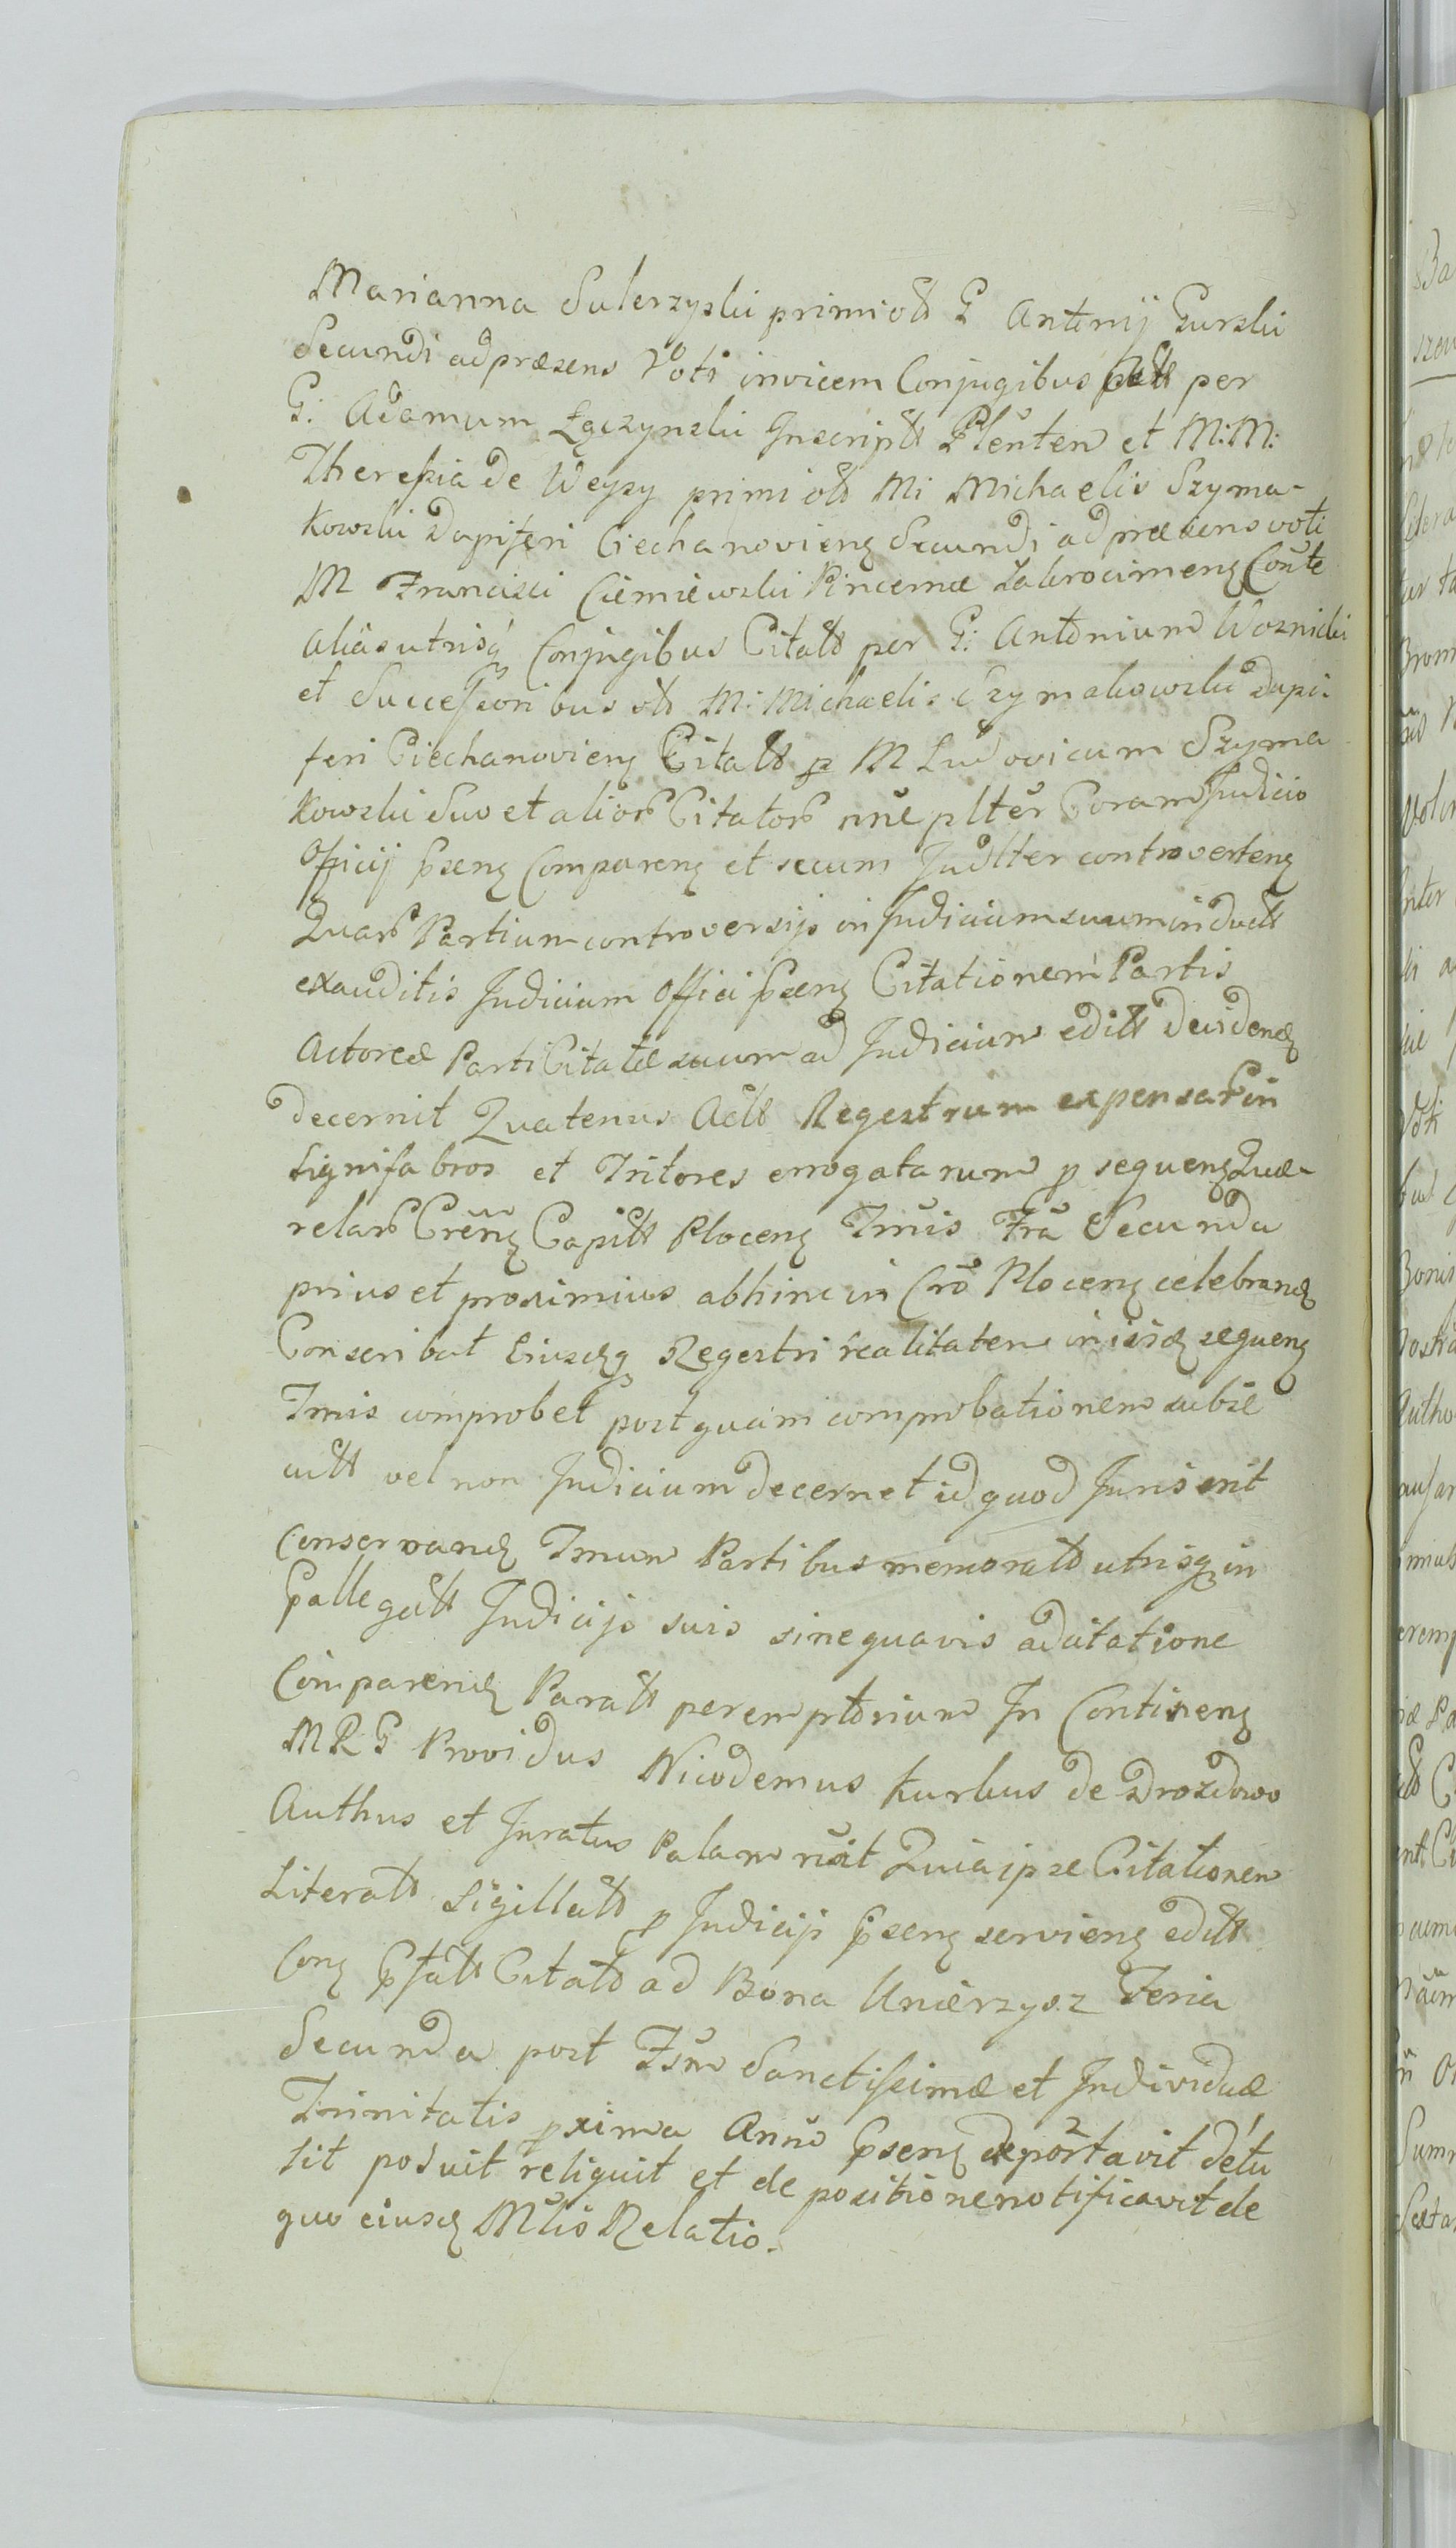 Marianna Sulerzyski primi olt G Antonij Gurski
Secundi ad præsens Voti invicem Conjugibus per
G: Adamum Łączynski Inscript Plenten et M: M:
Theresia de Weyzy primi olt Mi Michaelis Szyma-
kowski Dapiferi Ciechanovienz Secundi ad præsens voti
M Francisci Ciemiewski Pincernæ Zakrocimenz Conte
alias utrisq Conjugibus Citatt per G: Antonium Woznicki
et Successoribus olt M: Michaelis Szymakowski Dapi-
feri Ciechanovienz Citatt p M Ludovicum Szyma
kowski Suo et alior Citator nne plter Coram Judicio
Officij psenz Comparenz et secum Judlter controvertenz
Quar Partium controversijs in Judicium suum inductt
exauditis Judicium Offici psenz Citationem Partis
Actoreæ Parti Citatæ suum ad Judicium editt decidend
decernit Quatenus Actt Regestrum expensar in
Lignifabros et Tritores errogatarum p sequenz Quæ-
relar Crenz Capitt Plocenz Tmis Fra Secunda
prius et proximius abhinc in Cro Plocenz celebrand
Conscribat Eiusdq Regestri realitatem in iisd sequenz
Tmis comprobet post quam comprobationem subse
cutt vel non Judicium decernet id quod Juris erit
Conservand Tmum Partibus memoratt utrisq in
pallegatt Judicijs suis sine quavis adcitatione
Comparend Paratt peremptorium In Continenz
M R G Providus Nicodemus Kurkus de Drozdowo
Authus et Juratus Palam rcit Quia ipse Citationem
Literatt Sigillatt p Judicij psenz servienz editt
Conz pfatt Citatt ad Bona Unierzysz Feria
Secunda post Fsm Sanctissimæ et Individuæ
Trinitatis pxima Anno psenz deportavit detu
lit posuit reliquit et de positione notificavit de
quo eiusd Mlis Relatio.